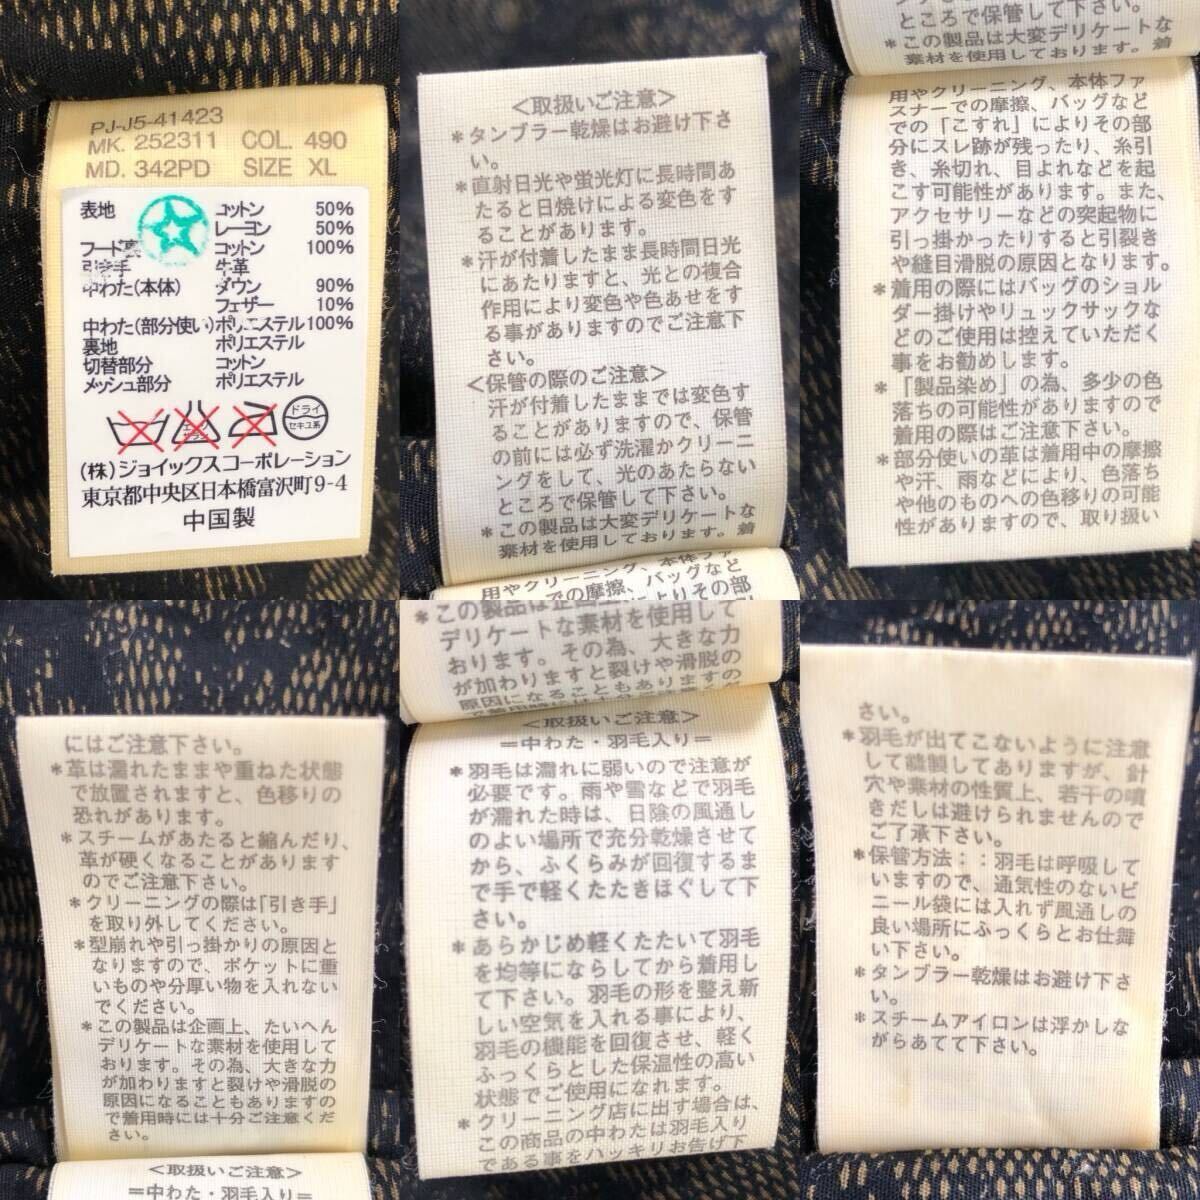 PJ-J5-41423
MK. 252311 COL. 490
MD. 342PD SIZE XL
表地 コットン 50%
レーヨン 50%
フード裏 コットン 100%
引き手 牛革
中わた(本体) ダウン 90%
フェザー 10%
中わた(部分使い)ポリエステル100%
裏地 ポリエステル
切替部分 コットン
メッシュ部分 ポリエステル
ドライ
セキユ系
(株)ジョイックスコーポレーション
東京都中央区日本橋富沢町9-4
中国製
<取扱いご注意>
*タンブラー乾燥はお避け下さ
い。
*直射日光や蛍光灯に長時間あ
たると日焼けによる変色をす
ることがあります。
*汗が付着したまま長時間日光
にあたりますと、光との複合
作用により変色や色あせをす
る事がありますのでご注意下
さい。
<保管の際のご注意>
汗が付着したままでは変色す
ることがありますので、保管
の前には必ず洗濯かクリーニ
ングをして、光のあたらない
ところで保管して下さい。
*この製品は大変デリケートな
素材を使用しております。着
用やクリーニング、本体ファ
スナーでの摩擦、バッグなど
ところで保管して下さい。
*この製品は大変デリケートな
素材を使用しております。着
用やクリーニング、本体ファ
スナーでの摩擦、バッグなど
での「こすれ」によりその部
分にスレ跡が残ったり、糸引
き、糸切れ、目よれなどを起
こす可能性があります。また、
アクセサリーなどの突起物に
引っ掛かったりすると引裂き
や縫目滑脱の原因となります。
*着用の際にはバッグのショル
ダー掛けやリュックサックな
どのご使用は控えていただく
事をお勧めします。
*「製品染め」の為、多少の色
落ちの可能性がありますので
着用の際はご注意下さい。
*部分使いの革は着用中の摩擦
や汗、雨などにより、色落ち
や他のものへの色移りの可能
性がありますので、取り扱い
にはご注意下さい。
*革は濡れたままや重ねた状態
で放置されますと、色移りの
恐れがあります。
*スチームがあたると縮んだり、
革が硬くなることがあります
のでご注意下さい。
*クリーニングの際は「引き手」
を取り外してください。
*型崩れや引っ掛かりの原因と
なりますので、ポケットに重
いものや分厚い物を入れない
でください。
*この製品は企画上、たいへん
デリケートな素材を使用して
おります。その為、大きな力
が加わりますと裂けや滑脱の
原因になることもありますの
で着用時には十分ご注意くだ
さい。
<取扱いご注意>
=中わた・羽毛入り=
デリケートな素材を使用して
おります。その為、大きな力
が加わりますと裂けや滑脱の
原因になることもありますの
<取扱いご注意>
=中わた・羽毛入り=
*羽毛は濡れに弱いので注意が
必要です。雨や雪などで羽毛
が濡れた時は、日陰の風通し
のよい場所で充分乾燥させて
から、ふくらみが回復するま
で手で軽くたたきほぐして下
さい。
*あらかじめ軽くたたいて羽毛
を均等にならしてから着用し
て下さい。羽毛の形を整え新
しい空気を入れる事により、
羽毛の機能を回復させ、軽く
ふっくらとした保温性の高い
状態でご使用になれます。
*クリーニング店に出す場合は、
この商品の中わたは羽毛入り
である事をハッキリお告げ下
さい。
*羽毛が出てこないように注意
して縫製してありますが、針
穴や素材の性質上、若干の噴
きだしは避けられませんので
ご了承下さい。
*保管方法：：羽毛は呼吸して
いますので、通気性のないビ
ニール袋には入れず風通しの
良い場所にふっくらとお仕舞
い下さい。
*タンブラー乾燥はお避け下さ
い。
*スチームアイロンは浮かしな
がらあてて下さい。